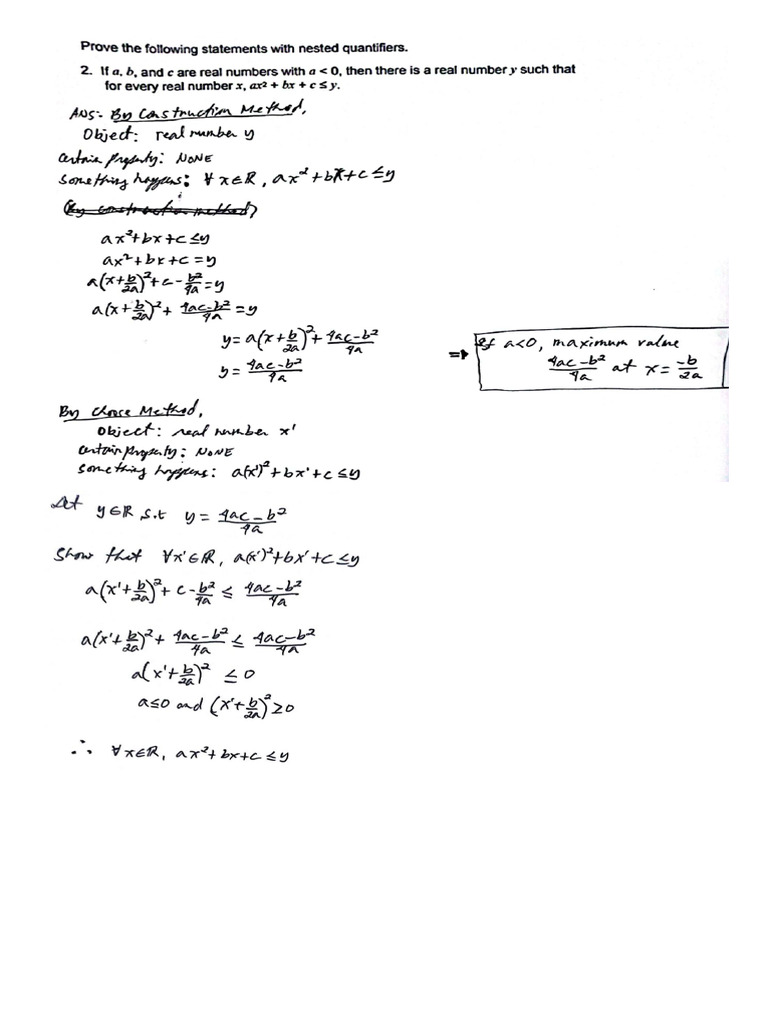 Prove the following statements with nested quantifiers.
2. If a, b, and c are real numbers with a < 0, then there is a real number y such that
for every real number x, ax² + bx + c ≤ y.
ANS:- By Construction Method,
Object: real number y
Certain Property: NONE
Something happens: ∀ x∈ℝ, ax²+bx+c≤y
(By construction method)
ax²+bx+c≤y
ax²+bx+c=y
a(x+b/2a)²+c-b²/4a=y
a(x+b/2a)²+4ac-b²/4a=y
y=a(x+b/2a)²+4ac-b²/4a
y=4ac-b²/4a
⇒ If a<0, maximum value
4ac-b²/4a at x=-b/2a
By Choose Method,
Object: real number x'
Certain property: NONE
Something happens: a(x')²+bx'+c≤y
Let y∈ℝ s.t y=4ac-b²/4a
Show that ∀x'∈ℝ, a(x')²+bx'+c≤y
a(x'+b/2a)²+c-b²/4a≤4ac-b²/4a
a(x'+b/2a)²+4ac-b²/4a≤4ac-b²/4a
a(x'+b/2a)²≤0
a≤0 and (x'+b/2a)²≥0
∴ ∀x∈ℝ, ax²+bx+c≤y